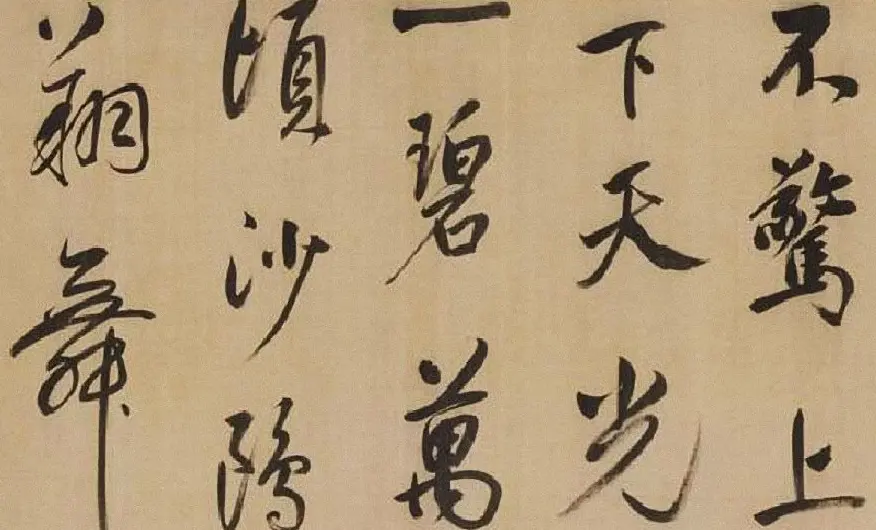 不驚上
下天光
一碧萬
頃沙鷗
翔舞